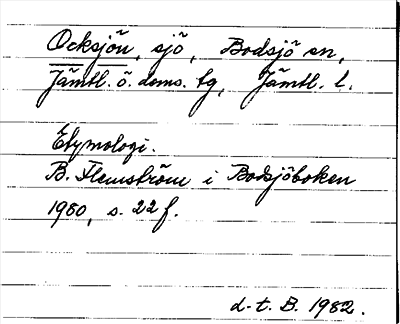 Ocksjön, sjö, Bodsjö sn,
Jämtl. ö. doms. tg, Jämtl. l.
Etymologi.
B. Flemström i Bodsjöboken
1980, s. 22 f.
d. t. B. 1982.